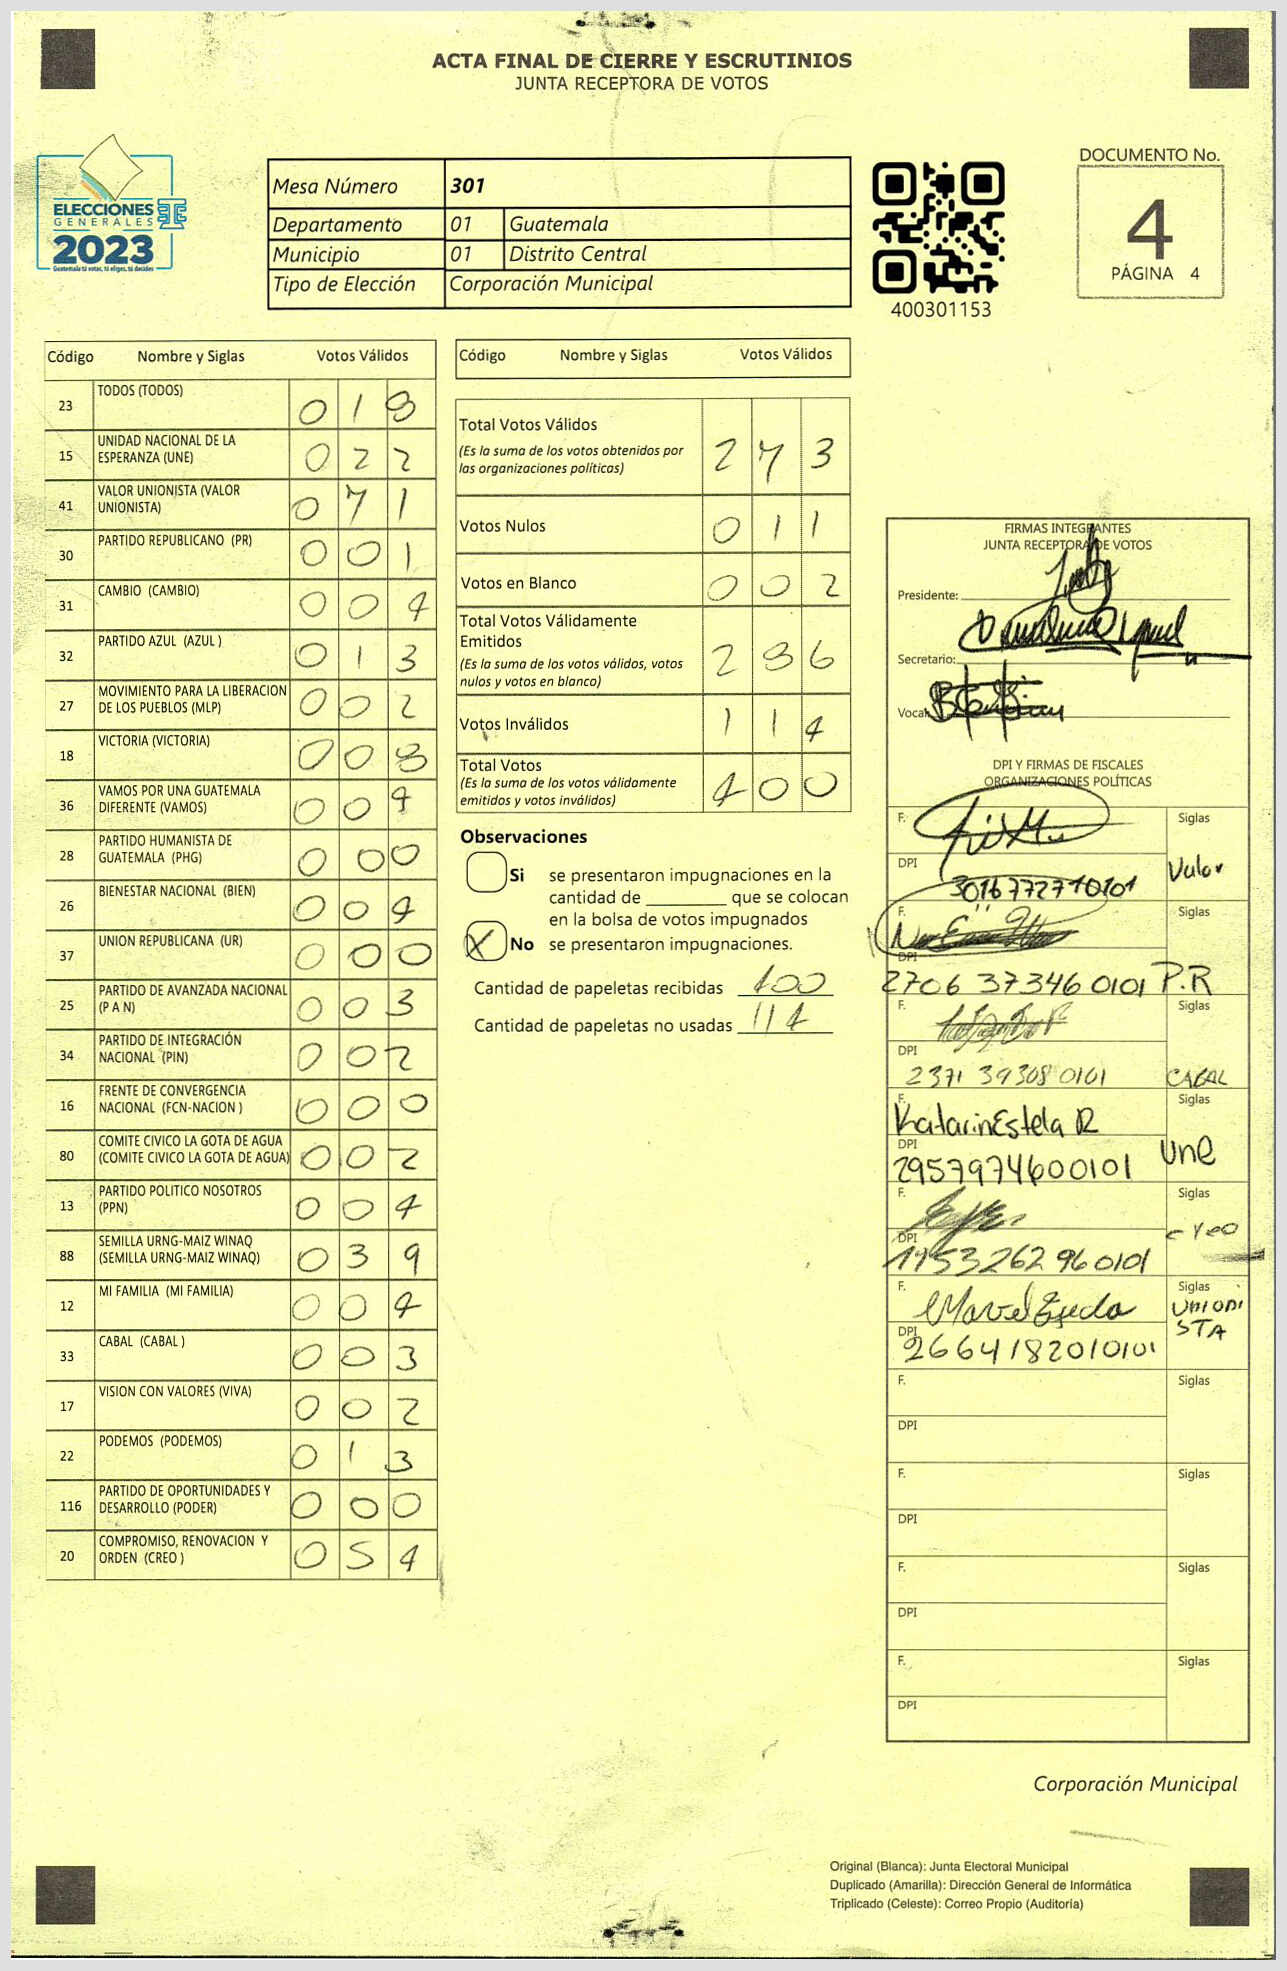 ACTA FINAL DE CIERRE Y ESCRUTINIOS
JUNTA RECEPTORA DE VOTOS
ELECCIONES
GENERALES
2023
Guatemala tú votas, tú eliges, tú decides
Mesa Número 301
Departamento 01 Guatemala
Municipio 01 Distrito Central
Tipo de Elección Corporación Municipal
400301153
DOCUMENTO No.
4
PÁGINA 4
Código Nombre y Siglas Votos Válidos
23 TODOS (TODOS) 0 1 8
15 UNIDAD NACIONAL DE LA
ESPERANZA (UNE) 0 2 2
41 VALOR UNIONISTA (VALOR
UNIONISTA) 0 7 1
30 PARTIDO REPUBLICANO (PR) 0 0 1
31 CAMBIO (CAMBIO) 0 0 4
32 PARTIDO AZUL (AZUL ) 0 1 3
27 MOVIMIENTO PARA LA LIBERACION
DE LOS PUEBLOS (MLP) 0 0 2
18 VICTORIA (VICTORIA) 0 0 8
36 VAMOS POR UNA GUATEMALA
DIFERENTE (VAMOS) 0 0 4
28 PARTIDO HUMANISTA DE
GUATEMALA (PHG) 0 0 0
26 BIENESTAR NACIONAL (BIEN) 0 0 4
37 UNION REPUBLICANA (UR) 0 0 0
25 PARTIDO DE AVANZADA NACIONAL
(P A N) 0 0 3
34 PARTIDO DE INTEGRACIÓN
NACIONAL (PIN) 0 0 2
16 FRENTE DE CONVERGENCIA
NACIONAL (FCN-NACION ) 0 0 0
80 COMITE CIVICO LA GOTA DE AGUA
(COMITE CIVICO LA GOTA DE AGUA) 0 0 2
13 PARTIDO POLITICO NOSOTROS
(PPN) 0 0 4
88 SEMILLA URNG-MAIZ WINAQ
(SEMILLA URNG-MAIZ WINAQ) 0 3 9
12 MI FAMILIA (MI FAMILIA) 0 0 4
33 CABAL (CABAL ) 0 0 3
17 VISION CON VALORES (VIVA) 0 0 2
22 PODEMOS (PODEMOS) 0 1 3
116 PARTIDO DE OPORTUNIDADES Y
DESARROLLO (PODER) 0 0 0
20 COMPROMISO, RENOVACION Y
ORDEN (CREO ) 0 5 4
Código Nombre y Siglas Votos Válidos
Total Votos Válidos
(Es la suma de los votos obtenidos por
las organizaciones políticas) 2 7 3
Votos Nulos 0 1 1
Votos en Blanco 0 0 2
Total Votos Válidamente
Emitidos
(Es la suma de los votos válidos, votos
nulos y votos en blanco) 2 8 6
Votos Inválidos 1 1 4
Total Votos
(Es la suma de los votos válidamente
emitidos y votos inválidos) 4 0 0
Observaciones
Si se presentaron impugnaciones en la
cantidad de ________ que se colocan
en la bolsa de votos impugnados
X No se presentaron impugnaciones.
Cantidad de papeletas recibidas 400
Cantidad de papeletas no usadas 114
FIRMAS INTEGRANTES
JUNTA RECEPTORA DE VOTOS
Presidente:
Secretario:
Vocal:
DPI Y FIRMAS DE FISCALES
ORGANIZACIONES POLÍTICAS
F. Siglas
DPI 3016772710101 Valor
F. Siglas
DPI 2706 37346 0101 P.R
F. Siglas
DPI 2371 39308 0101 CABAL
F. KatarinEstela R Siglas
DPI 2957974600101 Une
F. Siglas
DPI 1953262960101
F. Siglas
DPI 2664182010101 UNIONI
STA
F. Siglas
DPI
F. Siglas
DPI
F. Siglas
DPI
F. Siglas
DPI
Corporación Municipal
Original (Blanca): Junta Electoral Municipal
Duplicado (Amarilla): Dirección General de Informática
Triplicado (Celeste): Correo Propio (Auditoría)